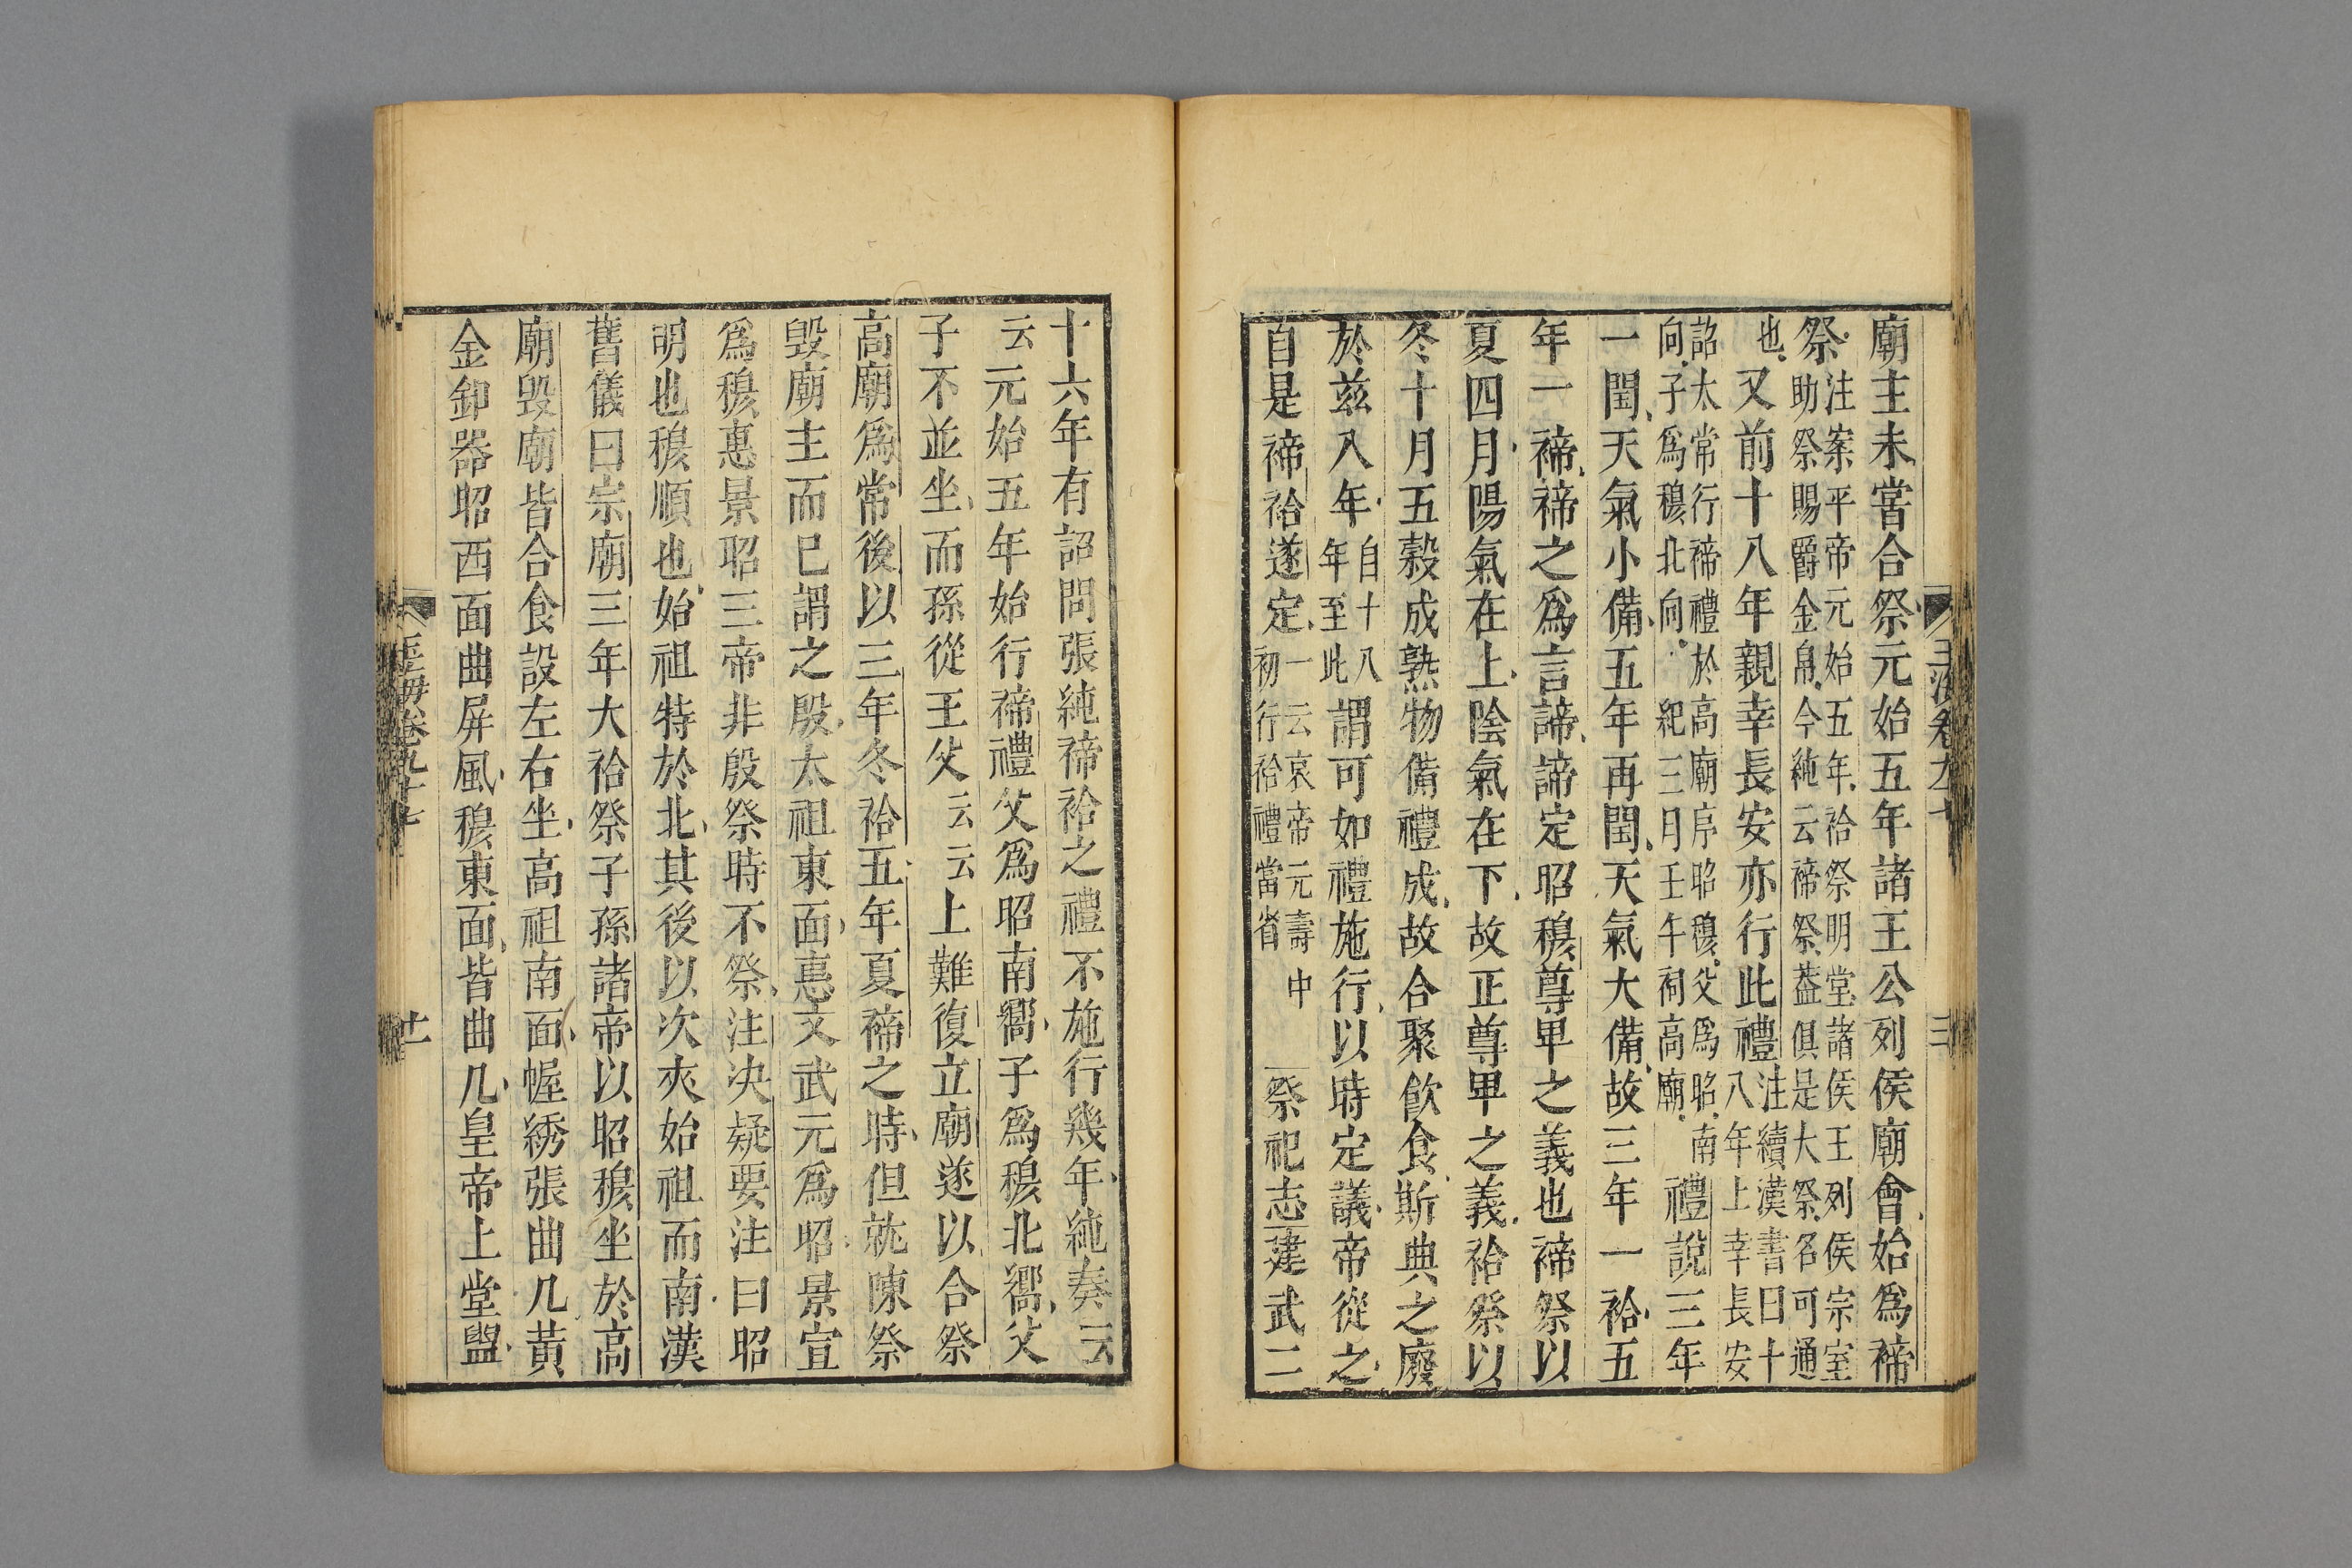 廟主未嘗合祭元始五年諸王公列侯廟會始爲禘
祭注案平帝元始五年祫祭明堂諸侯王列侯宗室
助祭賜爵金帛今純云禘祭蓋俱是大祭名可通
也又前十八年親幸長安亦行此禮注續漢書曰十
八年上幸長安
詔太常行禘禮於高廟序昭穆父爲昭南
向子爲穆北向紀三月壬午祠高廟禮說三年
一閏天氣小備五年再閏天氣大備故三年一祫五
年一禘禘之爲言諦諦定昭穆尊卑之義也禘祭以
夏四月陽氣在上陰氣在下故正尊卑之義祫祭以
冬十月五穀成熟物備禮成故合聚飲食斯典之廢
於茲八年自十八
年至此謂可如禮施行以時定議帝從之
自是禘祫遂定一云哀帝元壽中
初行祫禮當省祭祀志建武二
十六年有詔問張純禘祫之禮不施行幾年純奏云
云元始五年始行禘禮父爲昭南嚮子爲穆北嚮父
子不並坐而孫從王父云云上難復立廟遂以合祭
高廟爲常後以三年冬祫五年夏禘之時但就陳祭
毀廟主而已謂之殷太祖東面惠文武元爲昭景宣
爲穆惠景昭三帝非殷祭時不祭注決疑要注曰昭
明也穆順也始祖特於北其後以次夾始祖而南漢
舊儀曰宗廟三年大祫祭子孫諸帝以昭穆坐於高
廟毀廟皆合食設左右坐高祖南面幄綉張曲几黃
金釦器昭西面曲屏風穆東面皆曲几皇帝上堂盥
玉海卷九十七